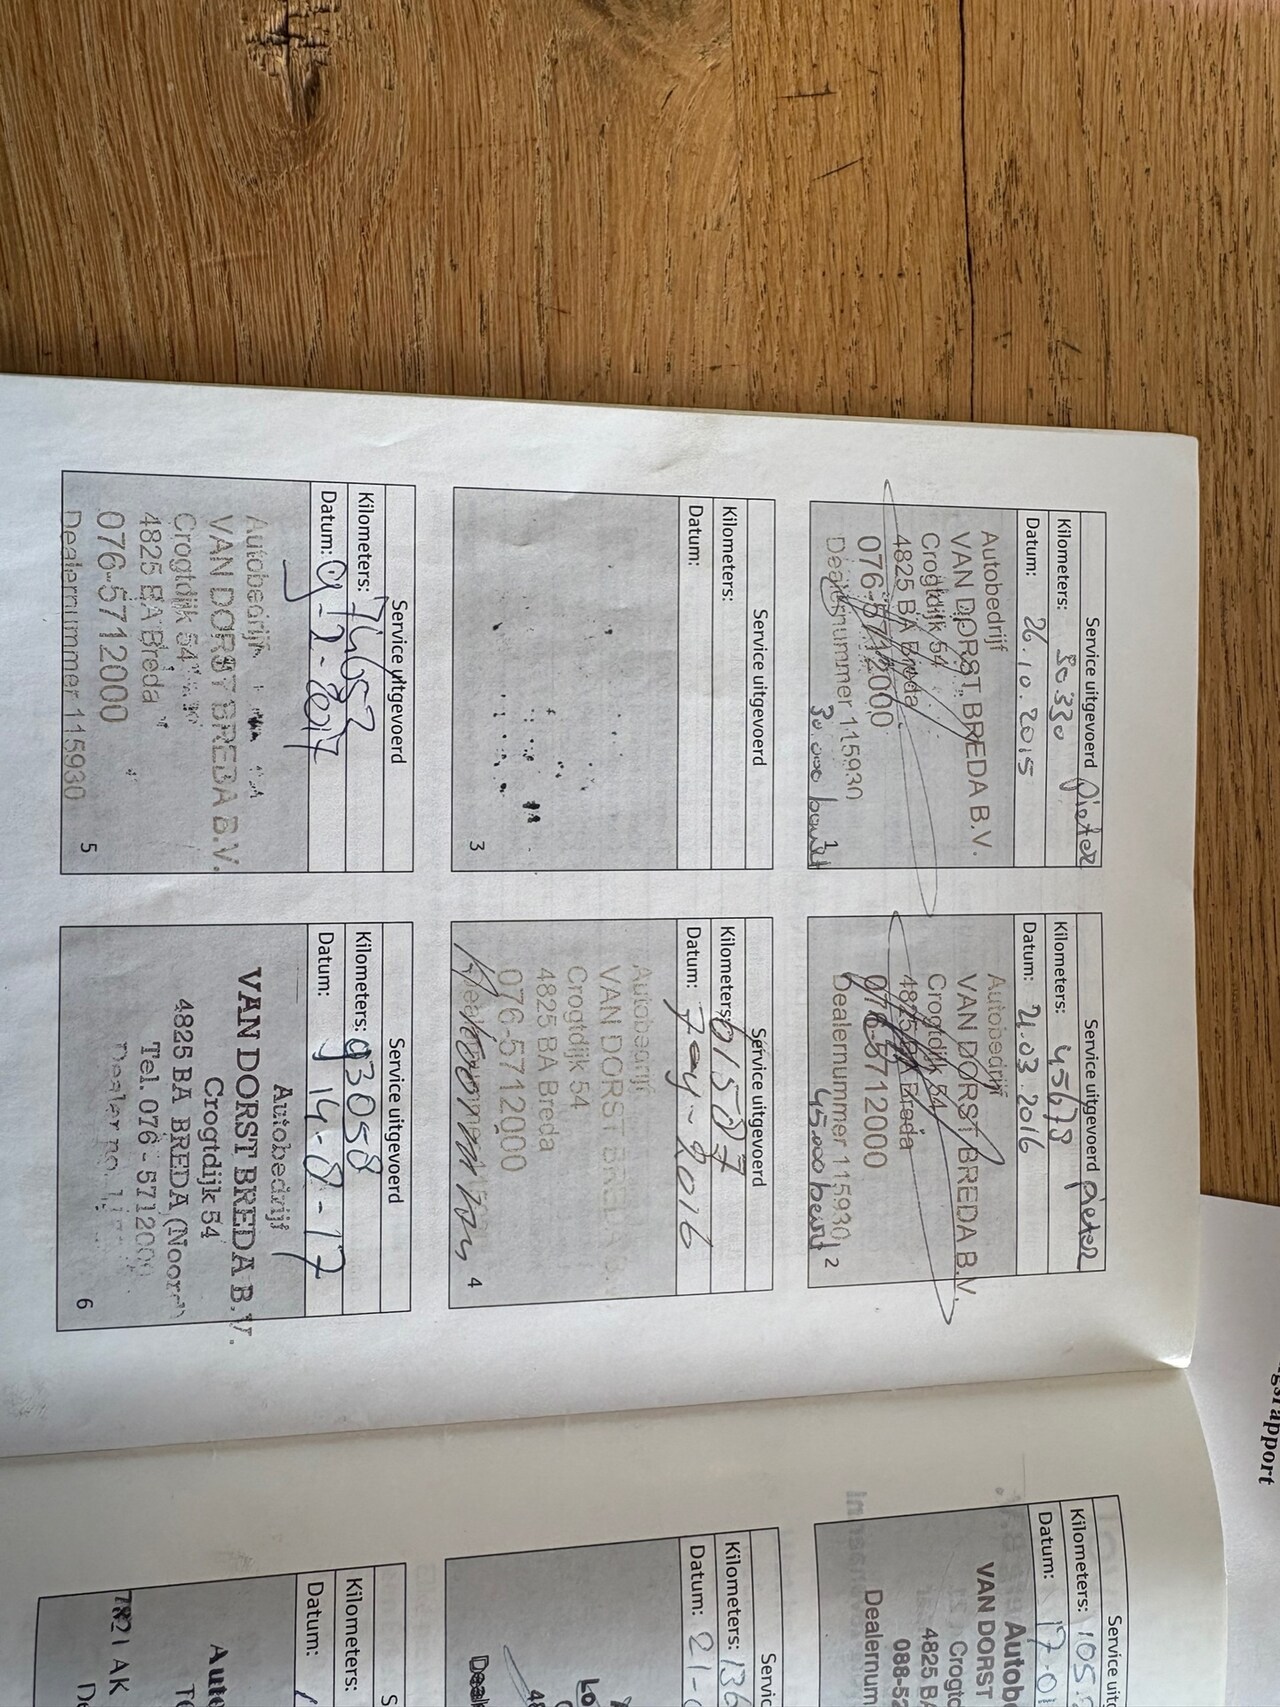 Service uitgevoerd Pieter
Kilometers: 30.330
Datum: 26.10.2015
Autobedrijf
VAN DORST BREDA B.V.
Crogtdijk 54
4825 BA Breda
076-5712000
Dealernummer 115930
30.000 beurt
1
Service uitgevoerd Pieter
Kilometers: 45678
Datum: 21.03.2016
Autobedrijf
VAN DORST BREDA B.V.
Crogtdijk 54
4825 BA Breda
076-5712000
Dealernummer 115930
45.000 beurt
2
Service uitgevoerd
Kilometers:
Datum:
3
Service uitgevoerd
Kilometers: 61587
Datum: 2016
Autobedrijf
VAN DORST BREDA B.V.
Crogtdijk 54
4825 BA Breda
076-5712000
4
Service uitgevoerd
Kilometers: 74657
Datum: 9-2-2017
Autobedrijf
VAN DORST BREDA B.V.
Crogtdijk 54
4825 BA Breda
076-5712000
Dealernummer 115930
5
Service uitgevoerd
Kilometers: 93058
Datum: 14-8-17
Autobedrijf
VAN DORST BREDA B.V.
Crogtdijk 54
4825 BA BREDA (Noord)
Tel. 076 - 5712000
Dealer no.
6
Service uitg
Kilometers: 105.
Datum: 17-01
Autob
VAN DORST
Crogtd
4825 BA
088-52
Dealernum
Servic
Kilometers: 136
Datum: 21-
Lo
48
Deal
S
Kilometers:
Datum:
Auto
7821 AK
De
gsrapport